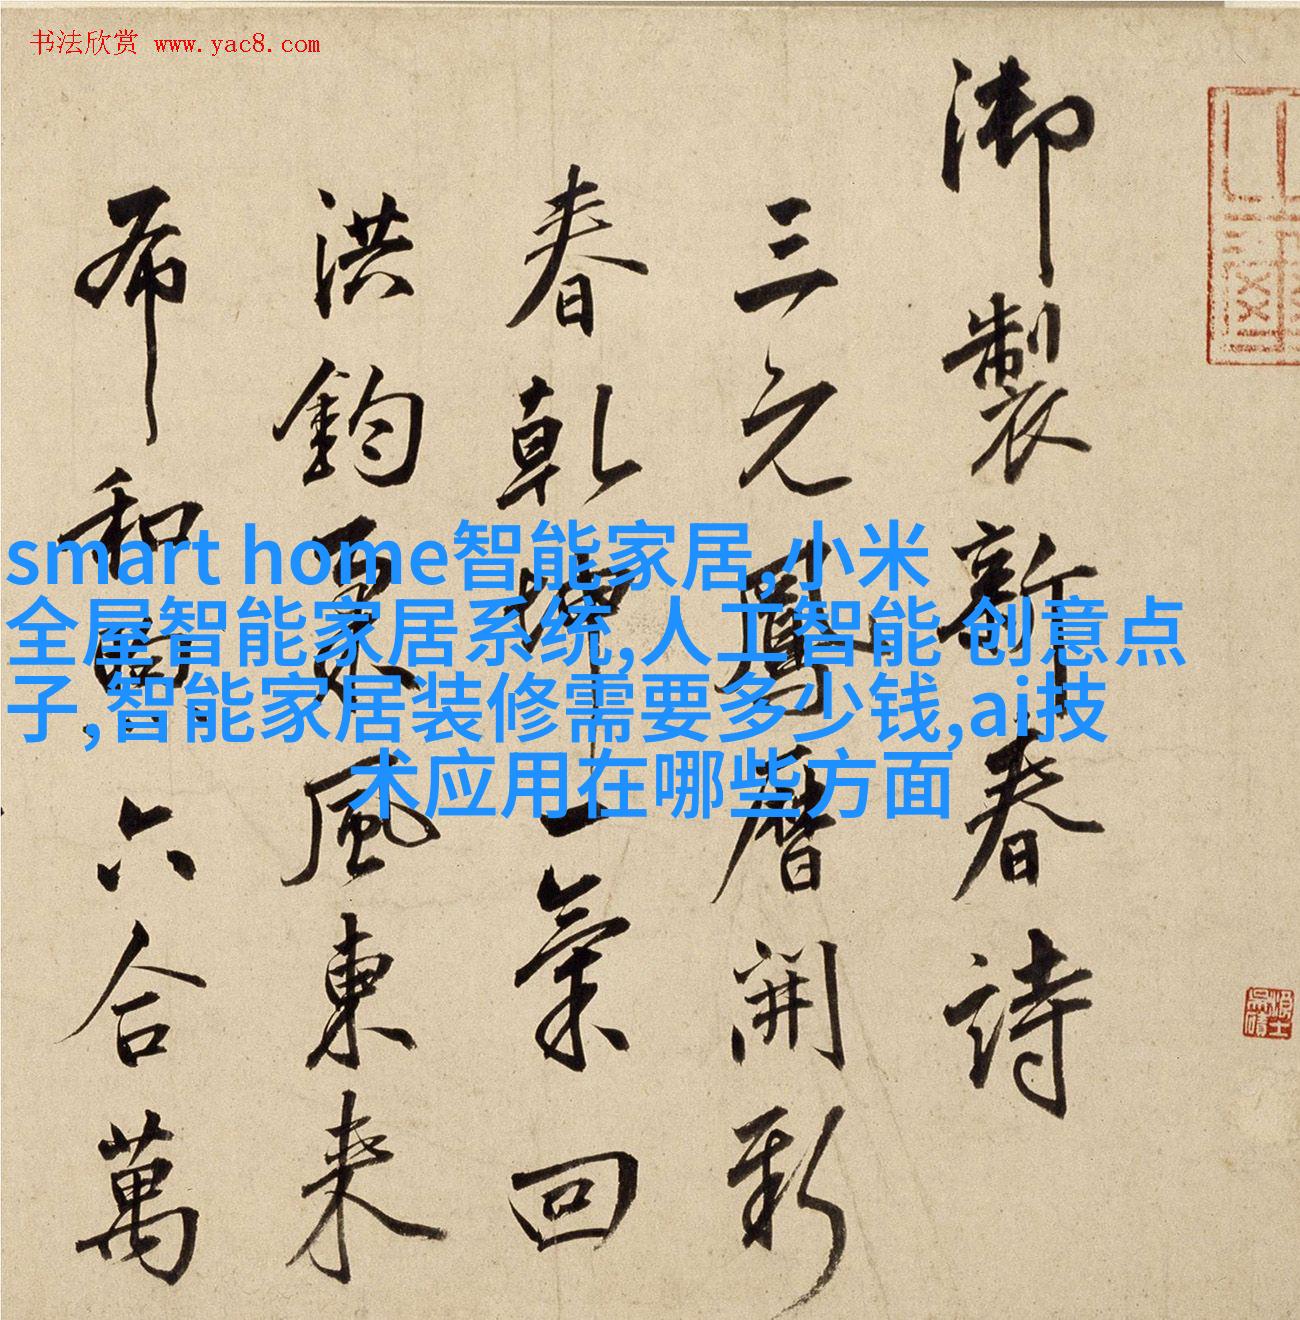 书法欣赏 www.yac8.com
御製新春詩
三元鳳曆開新
春乾坤一氣回
洪鈞風東来
布和六合萬
smart home智能家居,小米
全屋智能家居系统,人工智能 创意点
子,智能家居装修需要多少钱,ai技
术应用在哪些方面